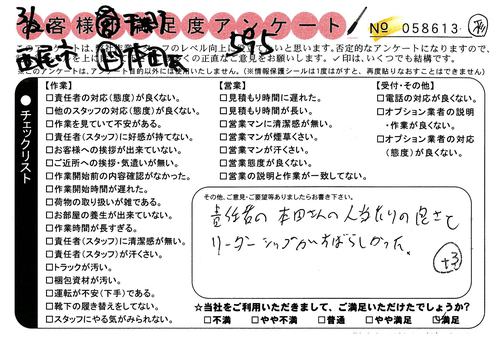 お客様満足度アンケート
№ 058613
595
※このアンケートは、アンケート目的以外には使用いたしません。(※情報保護シールは1度はがすと、再度貼りなおすことはできません)
チェックリスト
【作業】
□責任者の対応(態度)が良くない。
□他のスタッフの対応(態度)が良くない。
□作業を見ていて不安がある。
□責任者(スタッフ)に好感が持てない。
□お客様への挨拶が出来ていない。
□ご近所への挨拶・気遣いが無い。
□作業開始前の内容確認がなかった。
□作業開始時間が遅れた。
□荷物の取り扱いが雑である。
□お部屋の養生が出来ていない。
□作業時間が長すぎる。
□責任者(スタッフ)に清潔感が無い。
□責任者(スタッフ)が汗くさい。
□トラックが汚い。
□梱包資材が汚い。
□運転が不安(下手)である。
□靴下の履き替えをしてない。
□スタッフにやる気がみられない。
【営業】
□見積もり時間に遅れた。
□見積もり時間が長い。
□営業マンに清潔感が無い。
□営業マンが煙草くさい。
□営業マンが汗くさい。
□営業態度が良くない。
□営業の説明と作業が一致してない。
【受付・その他】
□電話の対応が良くない。
□オプション業者の説明
・作業が良くない。
□オプション業者の対応
(態度)が良くない。
その他、ご意見・ご要望等ありましたらお書き下さい。
責任者の本田さんの人当たりの良さと
リーダーシップがすばらしかった。
☆当社をご利用いただきまして、ご満足いただけたでしょうか?
□不満 □やや不満 □普通 □やや満足 ☑満足